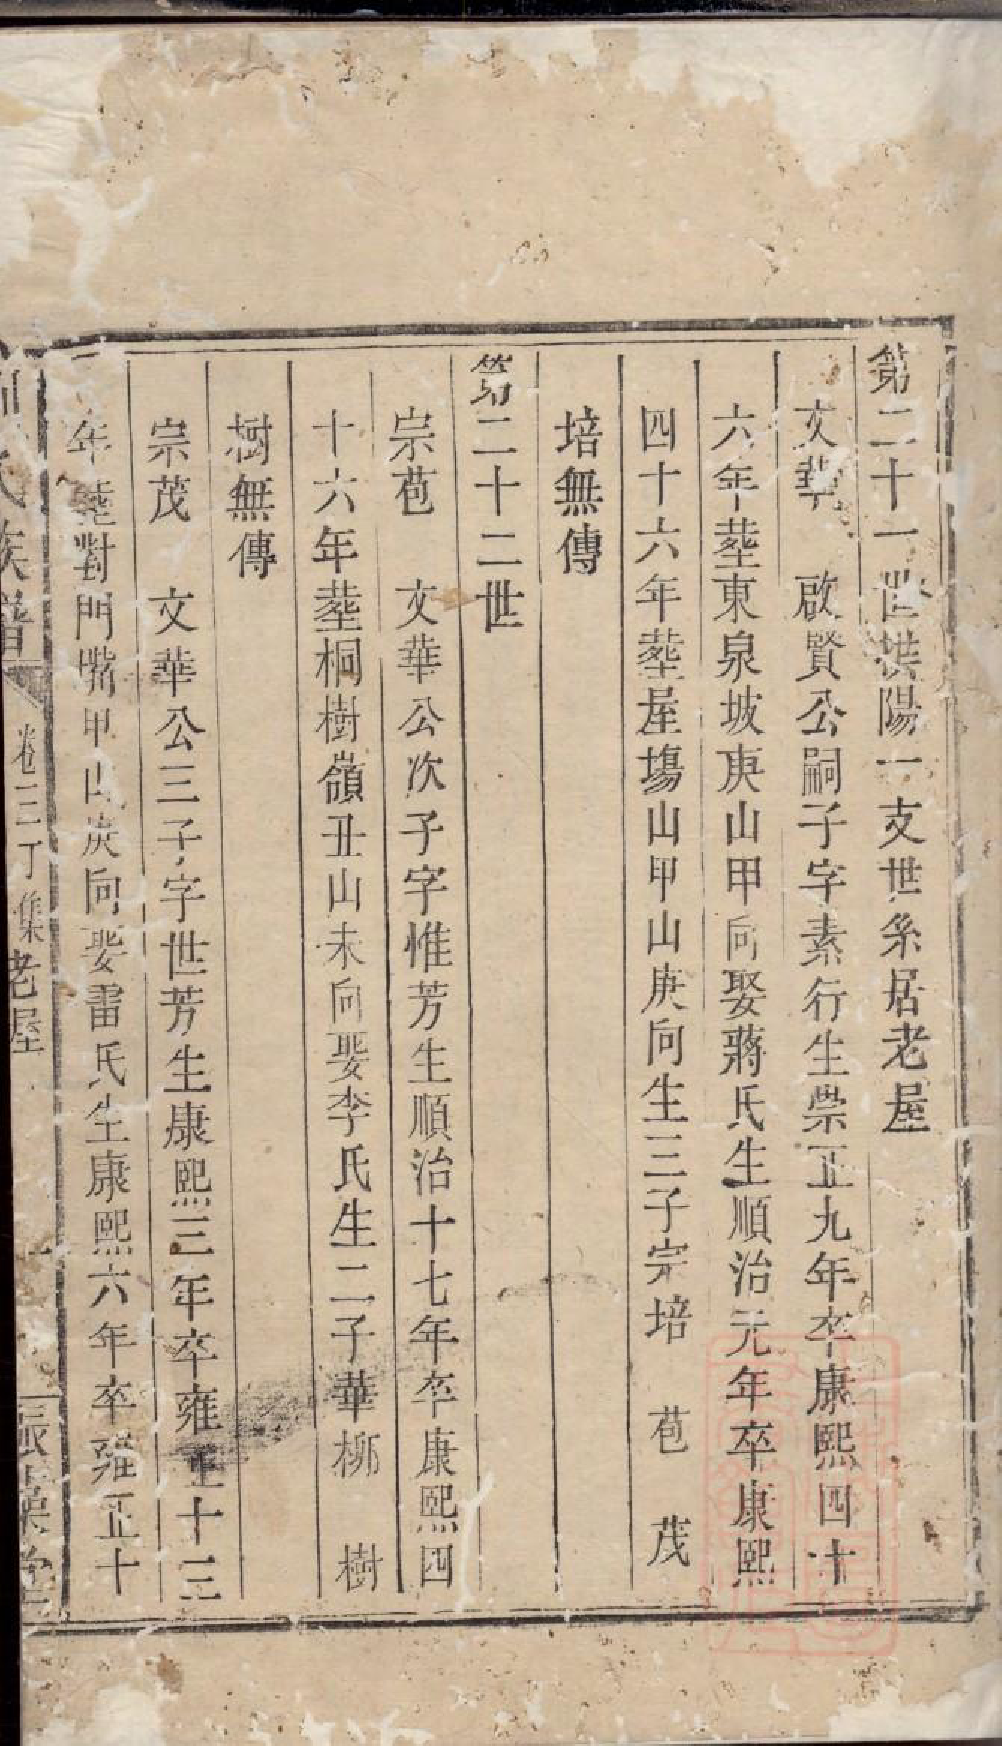 第二十一世拱陽一支世系居老屋
文華　啟賢公嗣子字素行生崇正九年卒康熙四十
六年葬東泉坡庚山甲向娶蔣氏生順治元年卒康熙
四十六年葬屋塲山甲山庚向生三子宗培　苞　茂
培無傳
第二十二世
宗苞　文華公次子字惟芳生順治十七年卒康熙四
十六年葬桐樹嶺丑山未向娶李氏生二子華柳　樹
樹無傳
宗茂　文華公三子字世芳生康熙三年卒雍正十三
年葬對門嘴甲山庚向娶雷氏生康熙六年卒雍正十
氏族譜　卷三丁集老屋　一　堂